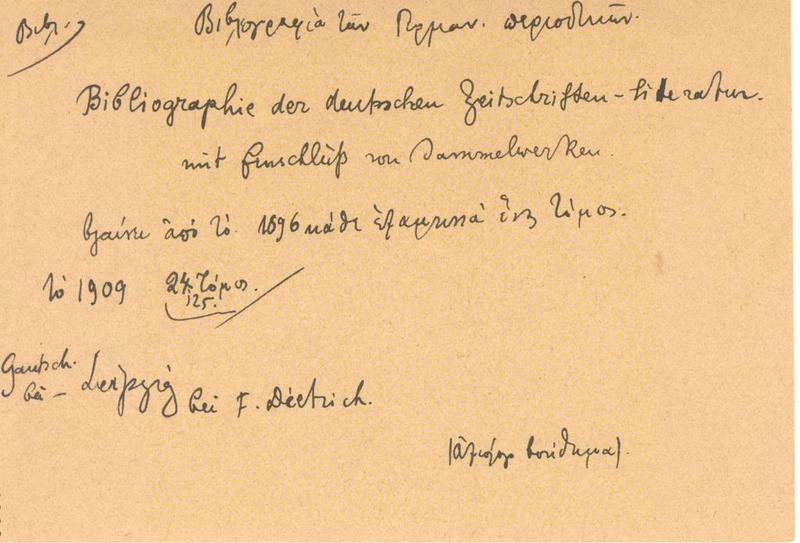 Βιβλ.
Βιβλιογραφία τῶν Γερμαν. περιοδικῶν.
Bibliographie der deutschen Zeitschriften-literatur.
mit Einschluß von Sammelwerken.
βγαίνει ἀπό τό 1896 κάθε ἑξαμηνιά ἕνας τόμος.
τό 1909 24. τόμος.
25.
Gautsch.
bei – Leipzig bei F. Dietrich.
(ἀξιόλογο βοήθημα).